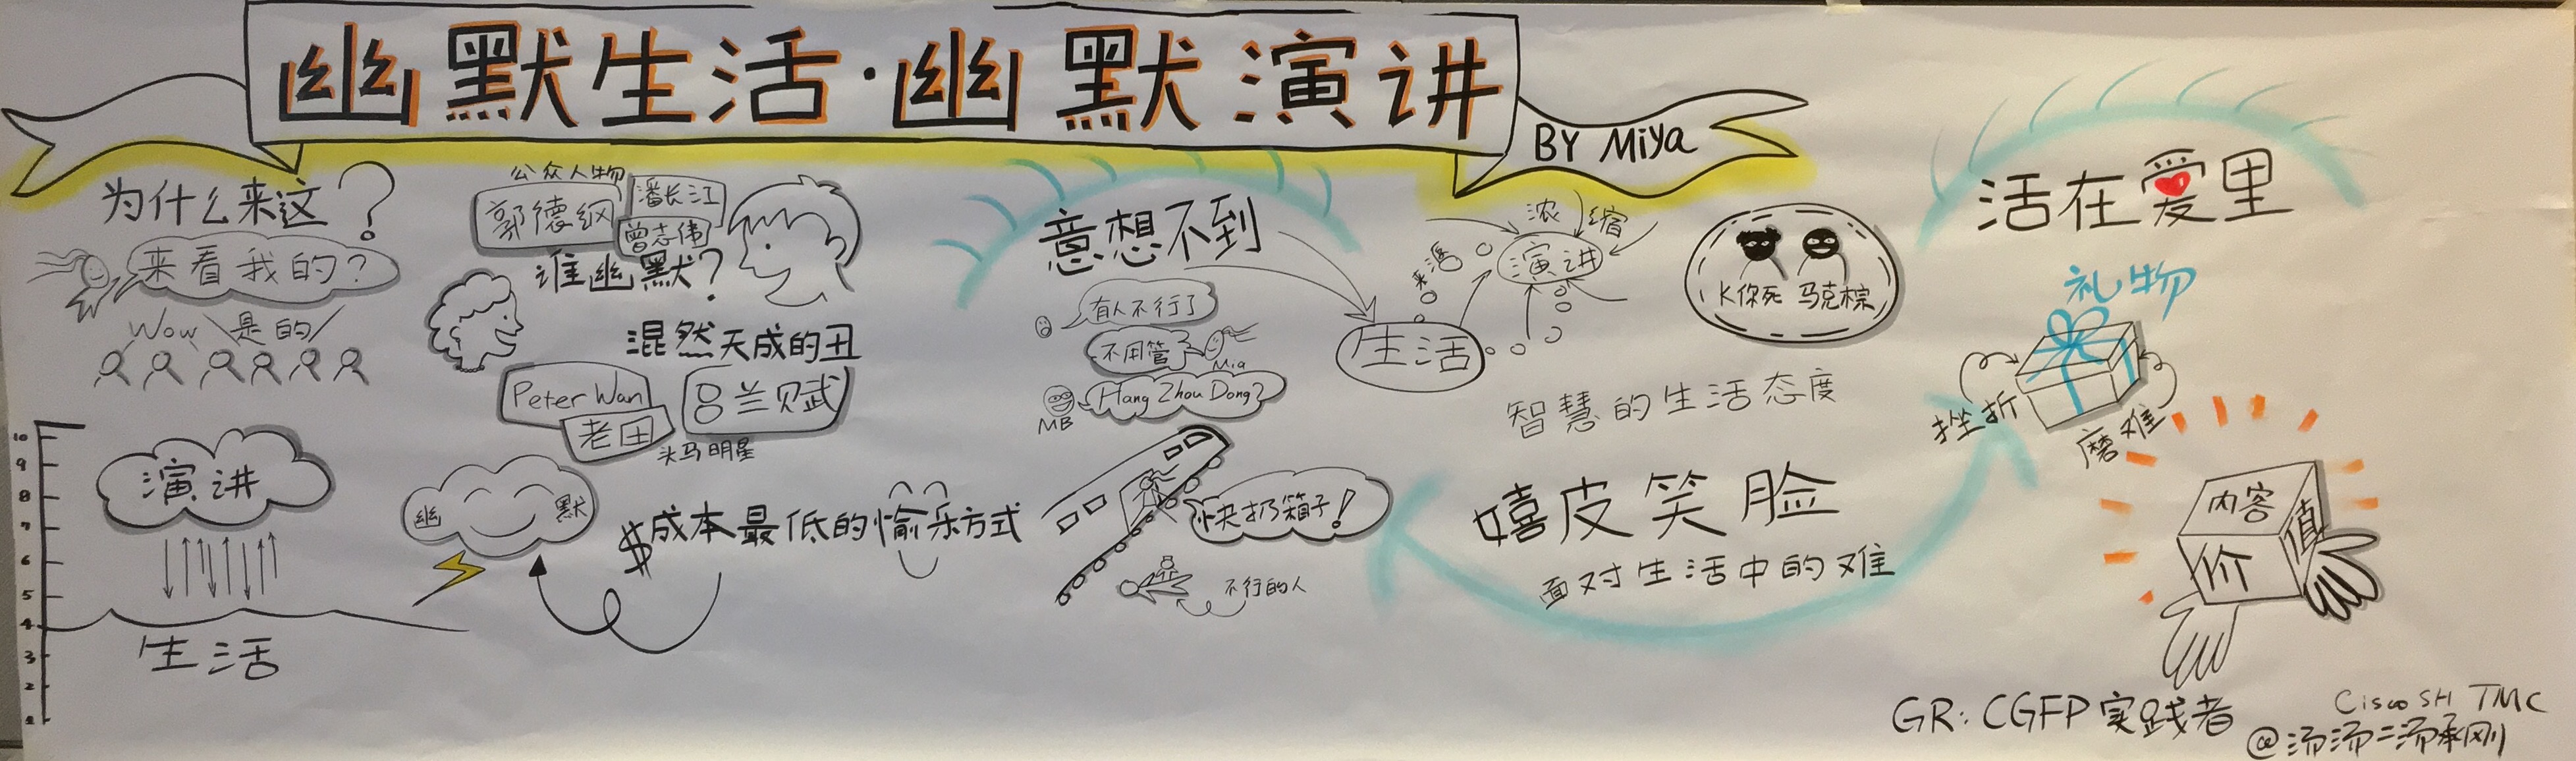 幽默生活·幽默演讲
BY Miya
为什么来这?
来看我的?
Wow 是的
10
9
8
7
6
5
4
3
2
1
演讲
生活
公众人物
郭德纲
潘长江
曾志伟
谁幽默?
混然天成的丑
Peter Wan
老田
吕兰赋
头马明星
幽 默
$成本最低的愉乐方式
意想不到
有人不行了
不用管了
Mia
Hang Zhou Dong?
MB
快扔箱子!
不行的人
生活
来源
演讲
浓缩
K你死 马克棕
智慧的生活态度
嬉皮笑脸
面对生活中的难
活在爱里
礼物
挫折
磨难
内容
价值
GR: CGFP 实践者
Cisco SH TMC
@汤汤二汤承刚